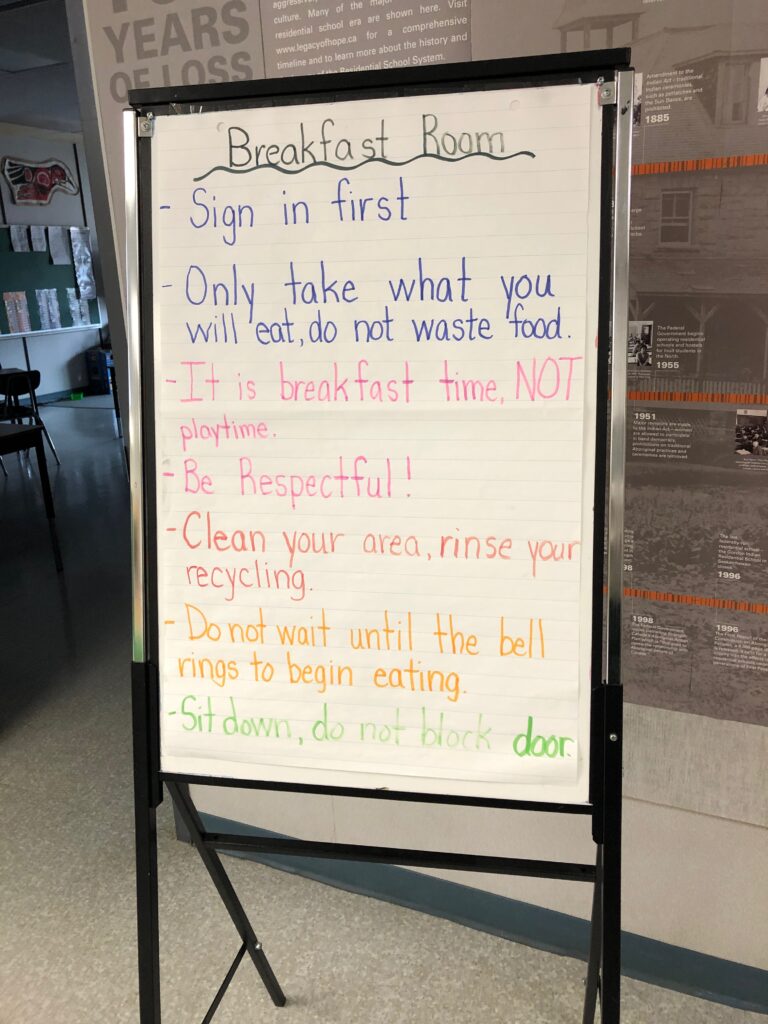 YEARS
OF LOSS
culture. Many of the major
residential school era are shown here. Visit
www.legacyofhope.ca for a comprehensive
timeline and to learn more about the history and
of the Residential School System.
Breakfast Room
- Sign in first
- Only take what you
will eat, do not waste food.
- It is breakfast time, NOT
playtime.
- Be Respectful!
- Clean your area, rinse your
recycling.
- Do not wait until the bell
rings to begin eating.
- Sit down, do not block door.
Amendment to the
Indian Act – traditional
Indian ceremonies,
such as potlatches and
the Sun Dance, are
prohibited.
1885
The Federal
Government begins
operating residential
schools and hostels
for Inuit students in
the North.
1955
1951
Major revisions are made
to the Indian Act – women
are allowed to participate
in band democracy,
prohibitions on traditional
Aboriginal practices and
ceremonies are removed.
The last
federally-run
residential school,
the Gordon Indian
Residential School in
Saskatchewan
closes.
1996
1998
1996